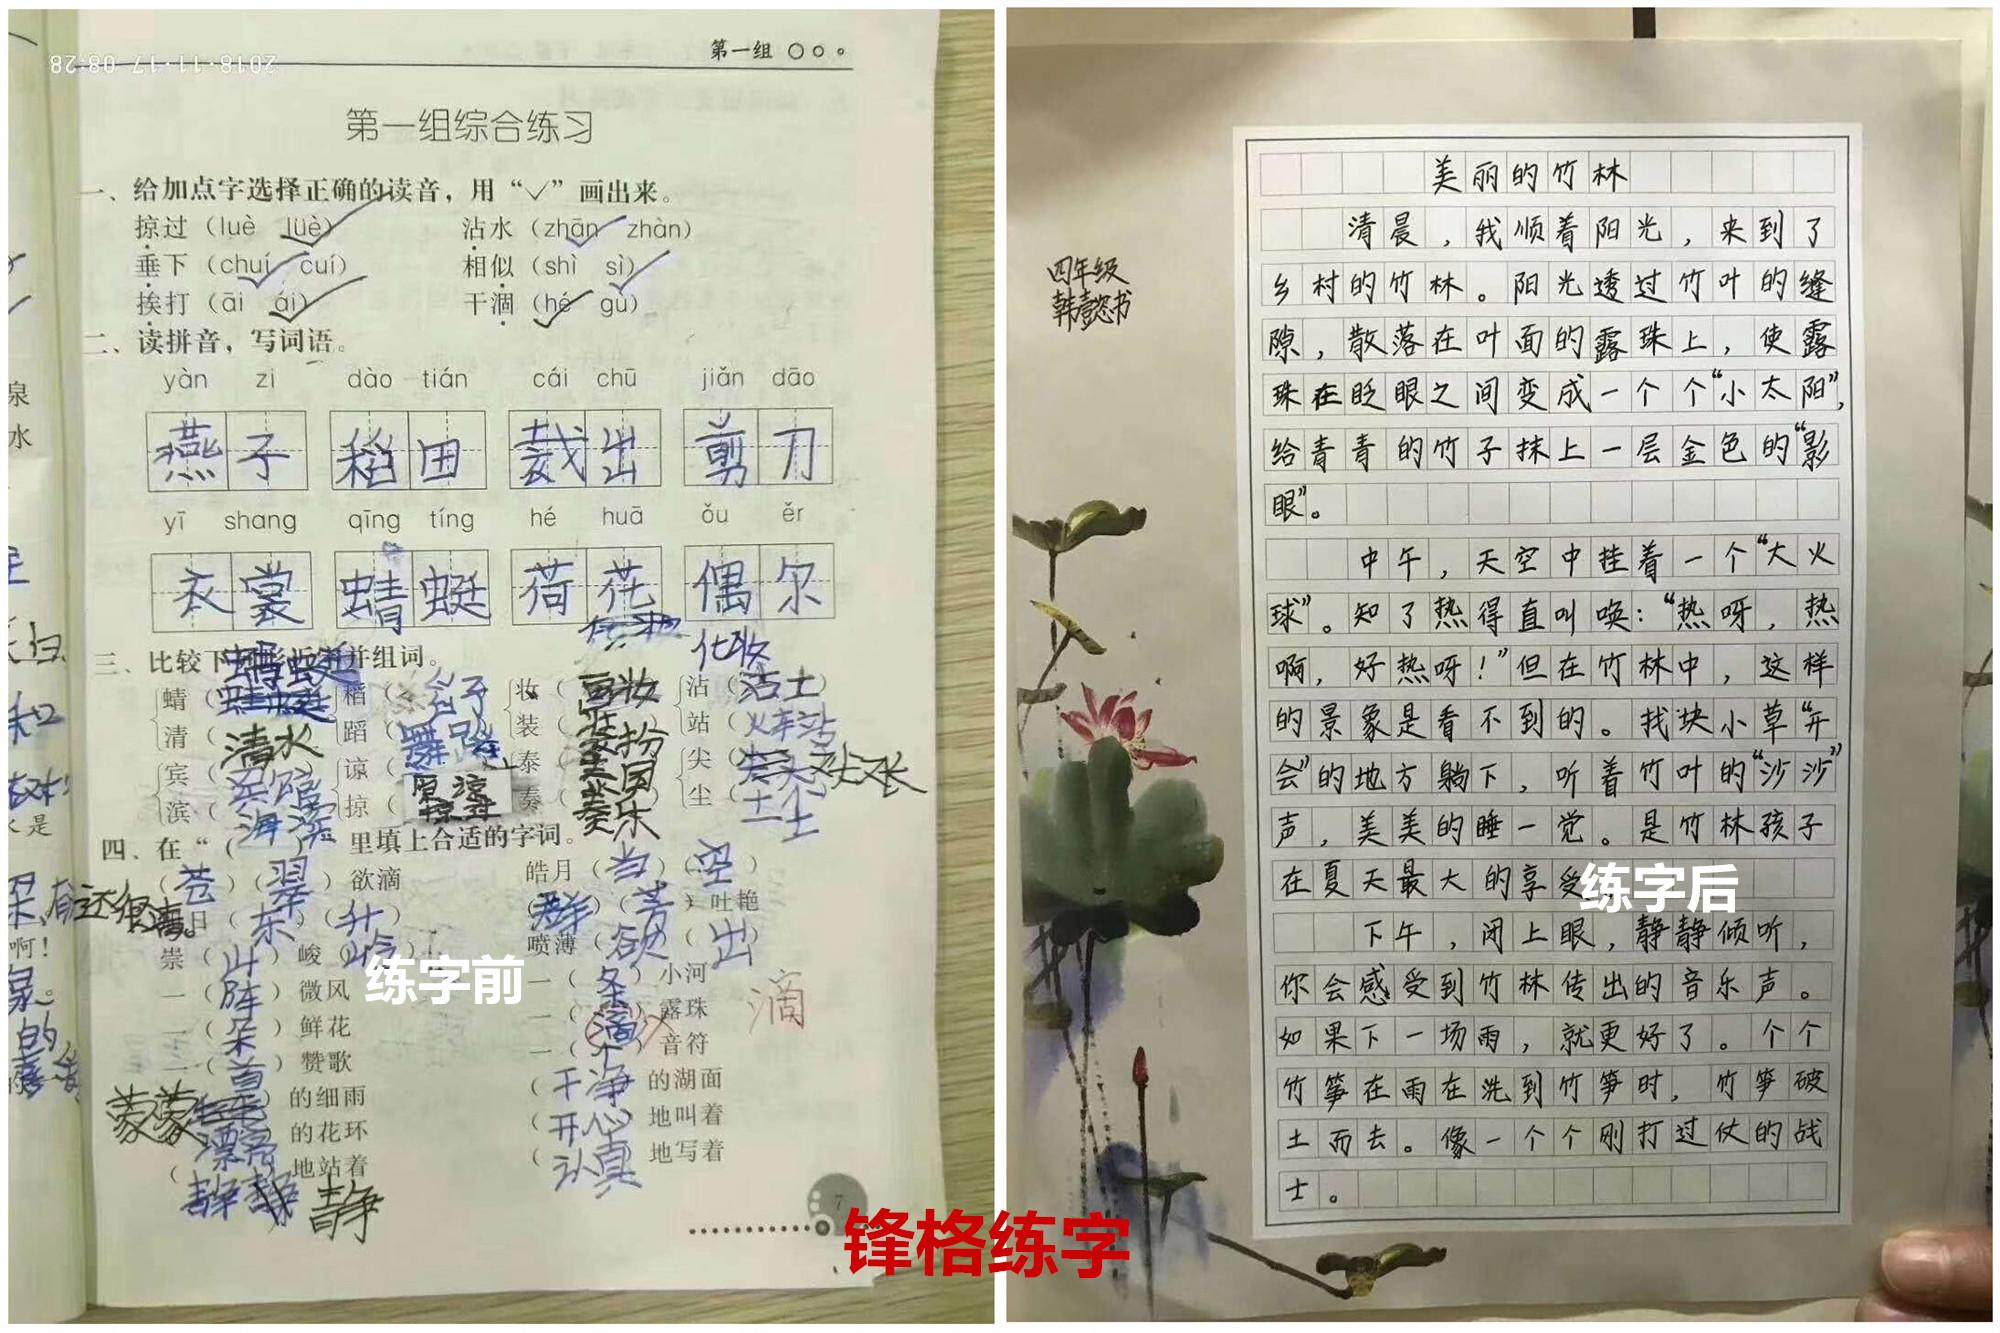 2018-11-17 08:28
第一组
第一组综合练习
一、给加点字选择正确的读音，用“√”画出来。
掠过（luè lüè） 沾水（zhān zhàn）
垂下（chuí cuí） 相似（shì sì）
挨打（āi ái） 干涸（hé gù）
二、读拼音，写词语。
yàn zi dào tián cái chū jiǎn dāo
燕子 稻田 裁出 剪刀
yī shang qīng tíng hé huā ǒu ěr
衣裳 蜻蜓 荷花 偶尔
化妆
三、比较下 并组词。
蜻（ 稻（ 妆（ 沾（沾土）
清（清水 蹈（舞蹈 装（装扮 站（火车站
宾（宾馆 谅（原谅 泰（泰国 尖（
滨（海滨 掠（ 奏（奏乐 尘（尘土
四、在“（ 里填上合适的字词。
（苍）（翠）欲滴 皓月（当）（空）
日（东）（升） （群）（芳）吐艳
崇（山）峻（岭） 喷薄（欲）（出）
一（阵）微风 一（条）小河
一（朵）鲜花 一（滴）露珠 滴
一（首）赞歌 一（个）音符
蒙蒙 的细雨 （干净 的湖面
（漂亮 的花环 （开心）地叫着
（ 地站着 （认真 地写着
静静 静
7
练字前
四年级
韩懿书
美丽的竹林
清晨，我顺着阳光，来到了
乡村的竹林。阳光透过竹叶的缝
隙，散落在叶面的露珠上，使露
珠在眨眼之间变成一个个“小太阳”，
给青青的竹子抹上一层金色的“影
眼”。
中午，天空中挂着一个“大火
球”。知了热得直叫唤：“热呀，热
啊，好热呀！”但在竹林中，这样
的景象是看不到的。找块小草“开
会”的地方躺下，听着竹叶的“沙沙”
声，美美的睡一觉。是竹林孩子
在夏天最大的享受
练字后
下午，闭上眼，静静倾听，
你会感受到竹林传出的音乐声。
如果下一场雨，就更好了。个个
竹笋在雨在洗到竹笋时，竹笋破
土而去。像一个个刚打过仗的战
士。
锋格练字